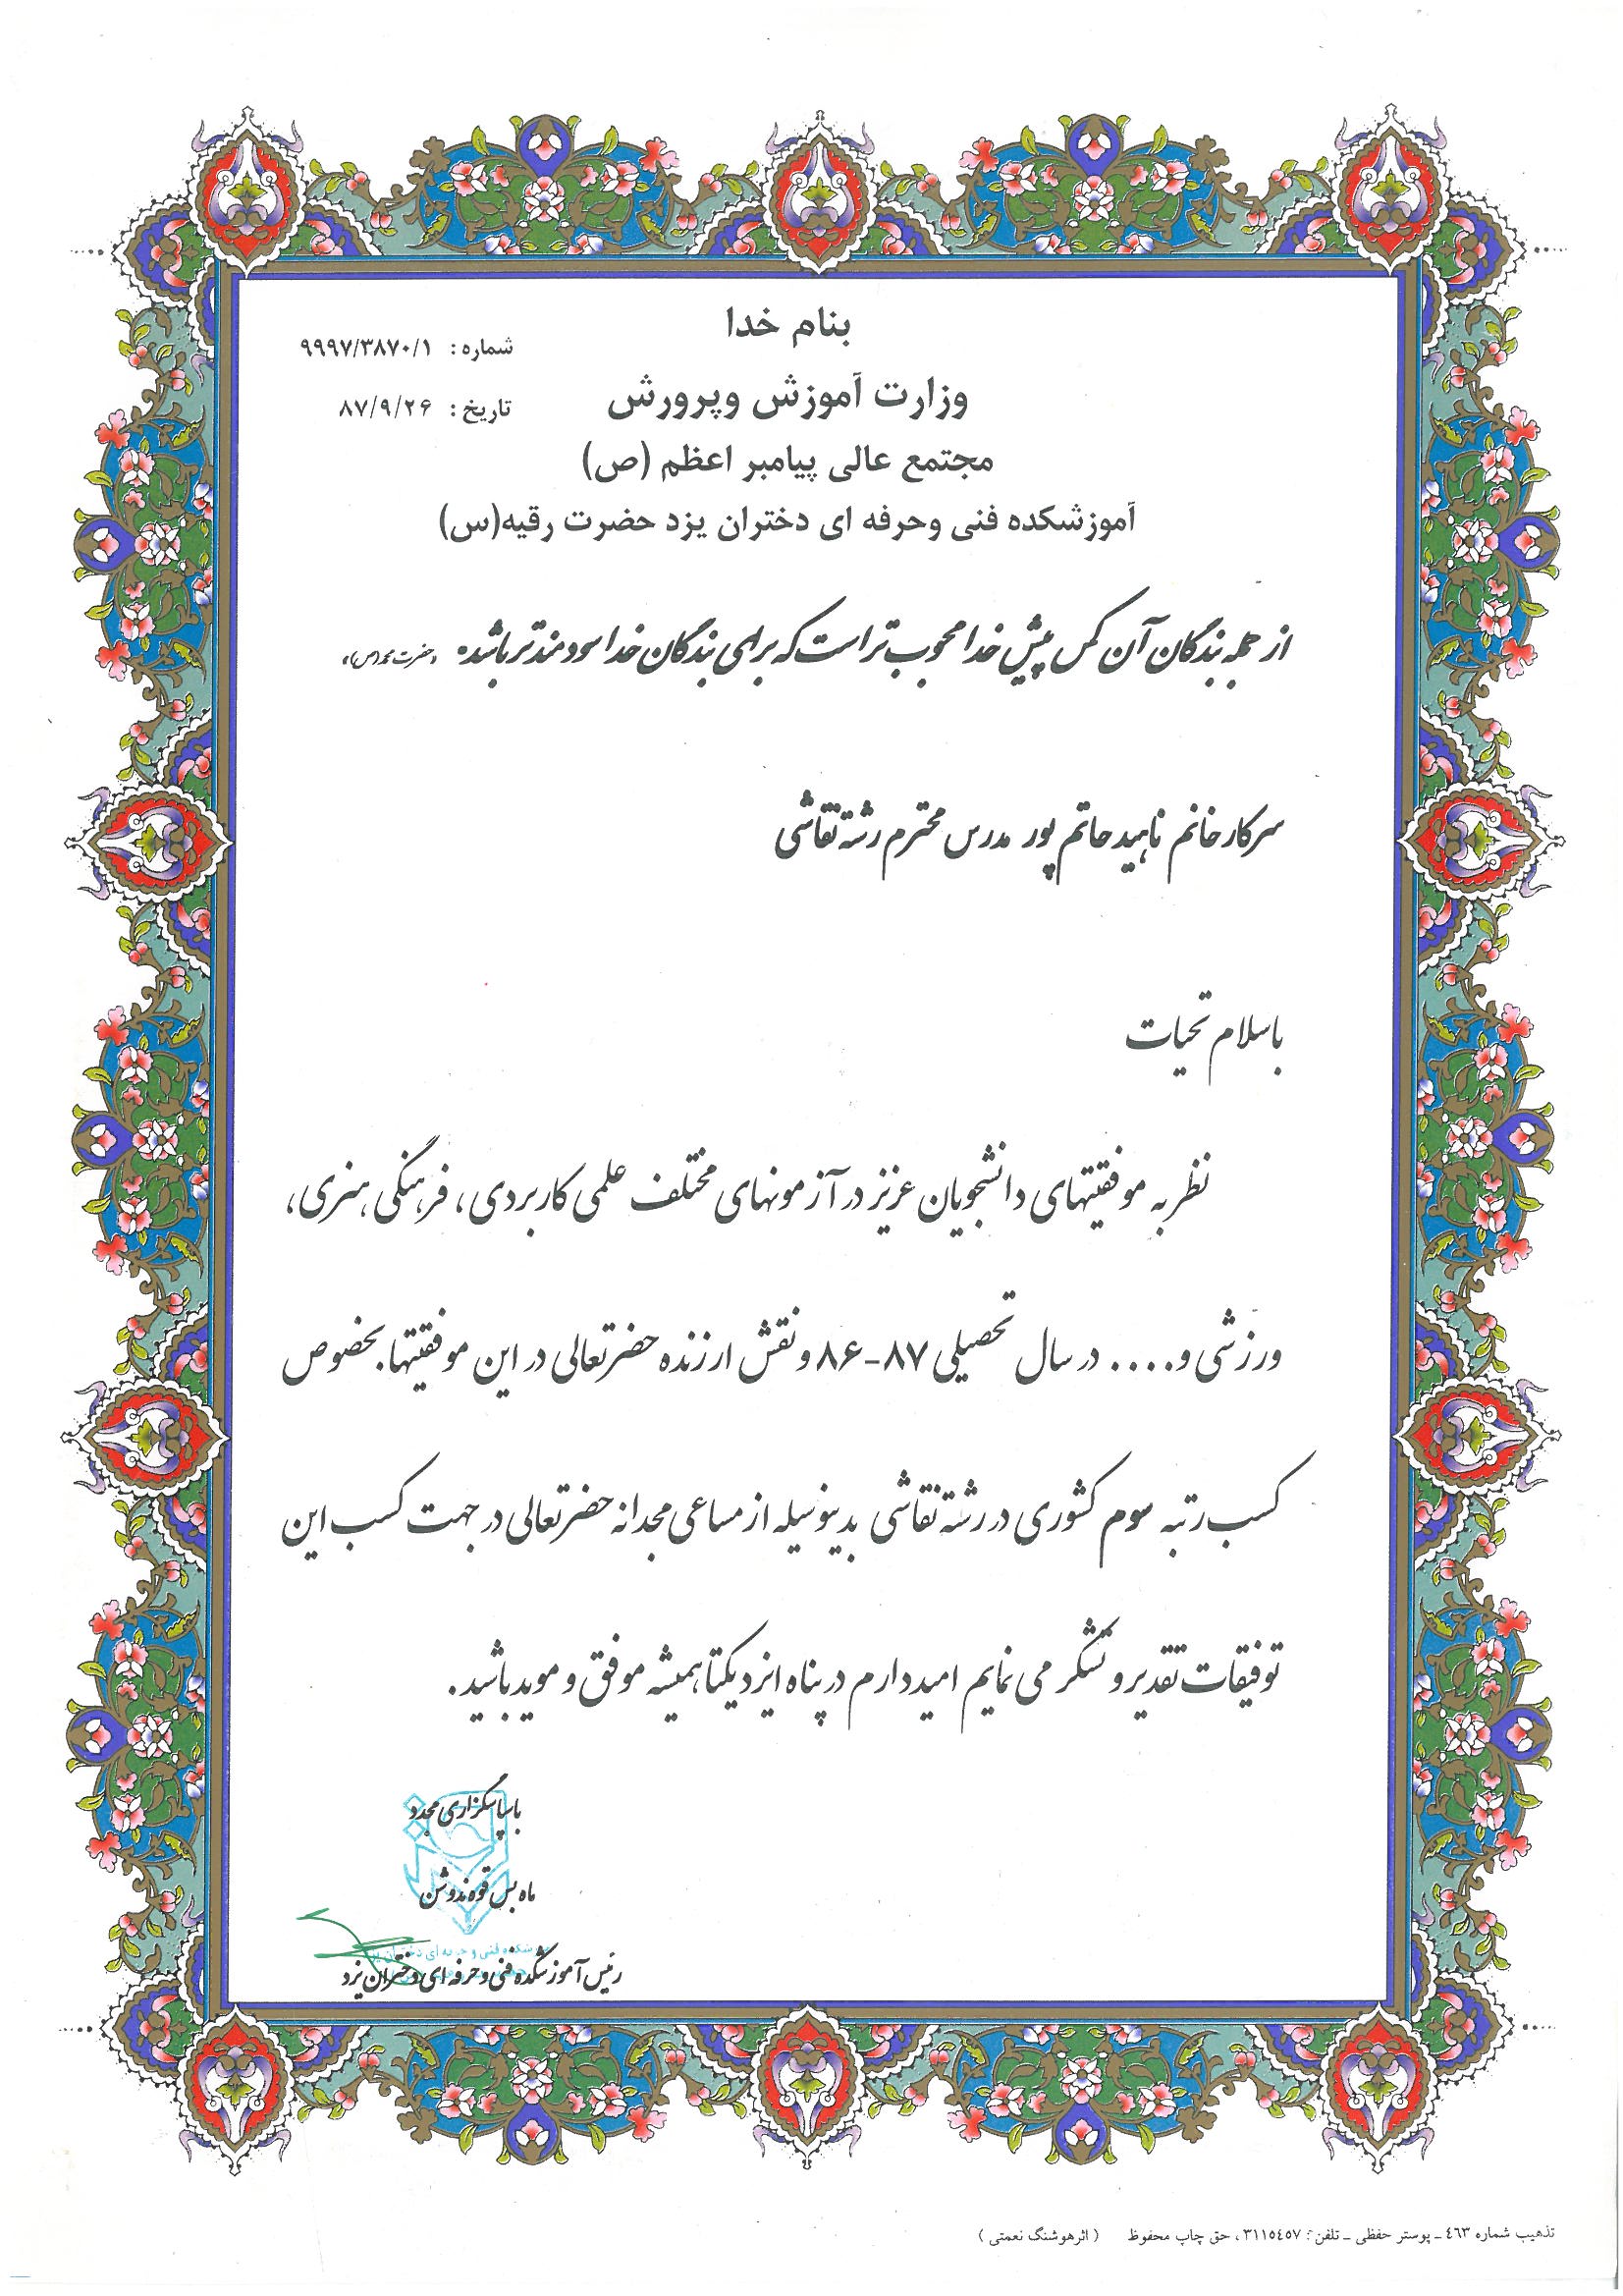 بنام خدا
شماره: ۹۹۹۷/۳۸۷۰/۱
وزارت آموزش وپرورش
تاریخ: ۸۷/۹/۲۶
مجتمع عالی پیامبر اعظم (ص)
آموزشکده فنی وحرفه ای دختران یزد حضرت رقیه(س)
از جمله بندگان آن کس پیش خدا محبوب تر است که برای بندگان خدا سودمندتر باشد» «حضرت محمد(ص)»
سرکار خانم ناهید حاتم پور مدرس محترم رشته نقاشی
باسلام تحیات
نظر به موفقیتهای دانشجویان عزیز در آزمونهای مختلف علمی کاربردی، فرهنگی هنری،
ورزشی و.... در سال تحصیلی ۸۷-۸۶ و نقش ارزنده حضرتعالی در این موفقیتها.بخصوص
کسب رتبه سوم کشوری در رشته نقاشی بدینوسیله از مساعی مجدانه حضرتعالی در جهت کسب این
توفیقات تقدیر و تشکر می نمایم امید دارم در پناه ایزد یکتا همیشه موفق و موید باشید.
باسپاسگزاری مجدد
ماه بس قوه ندوشن
رئیس آموزشکده فنی و حرفه ای دختران یزد
تذهیب شماره ٤٦٣ ـ پوستر حفظی ـ تلفن: ۳۱۱۵٤۵۷، حق چاپ محفوظ (اثرهوشنگ نعمتی)